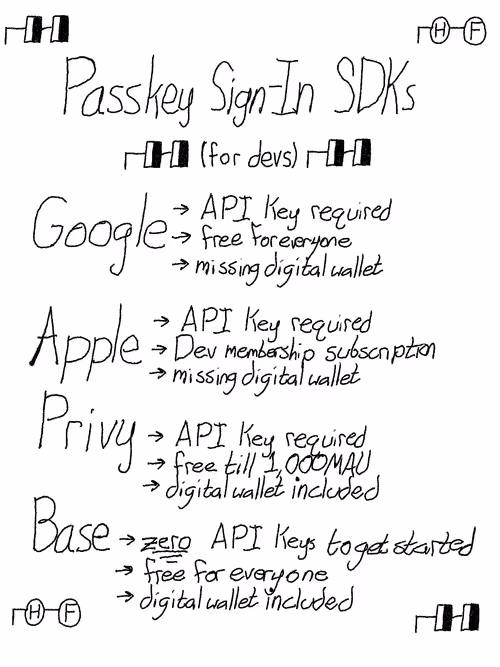 H F
Passkey Sign-In SDKs
(for devs)
Google
→ API Key required
→ free for everyone
→ missing digital wallet
Apple
→ API Key required
→ Dev membership subscription
→ missing digital wallet
Privy
→ API Key required
→ free till 1,000MAU
→ digital wallet included
Base
→ zero API Keys to get started
→ free for everyone
→ digital wallet included
H F